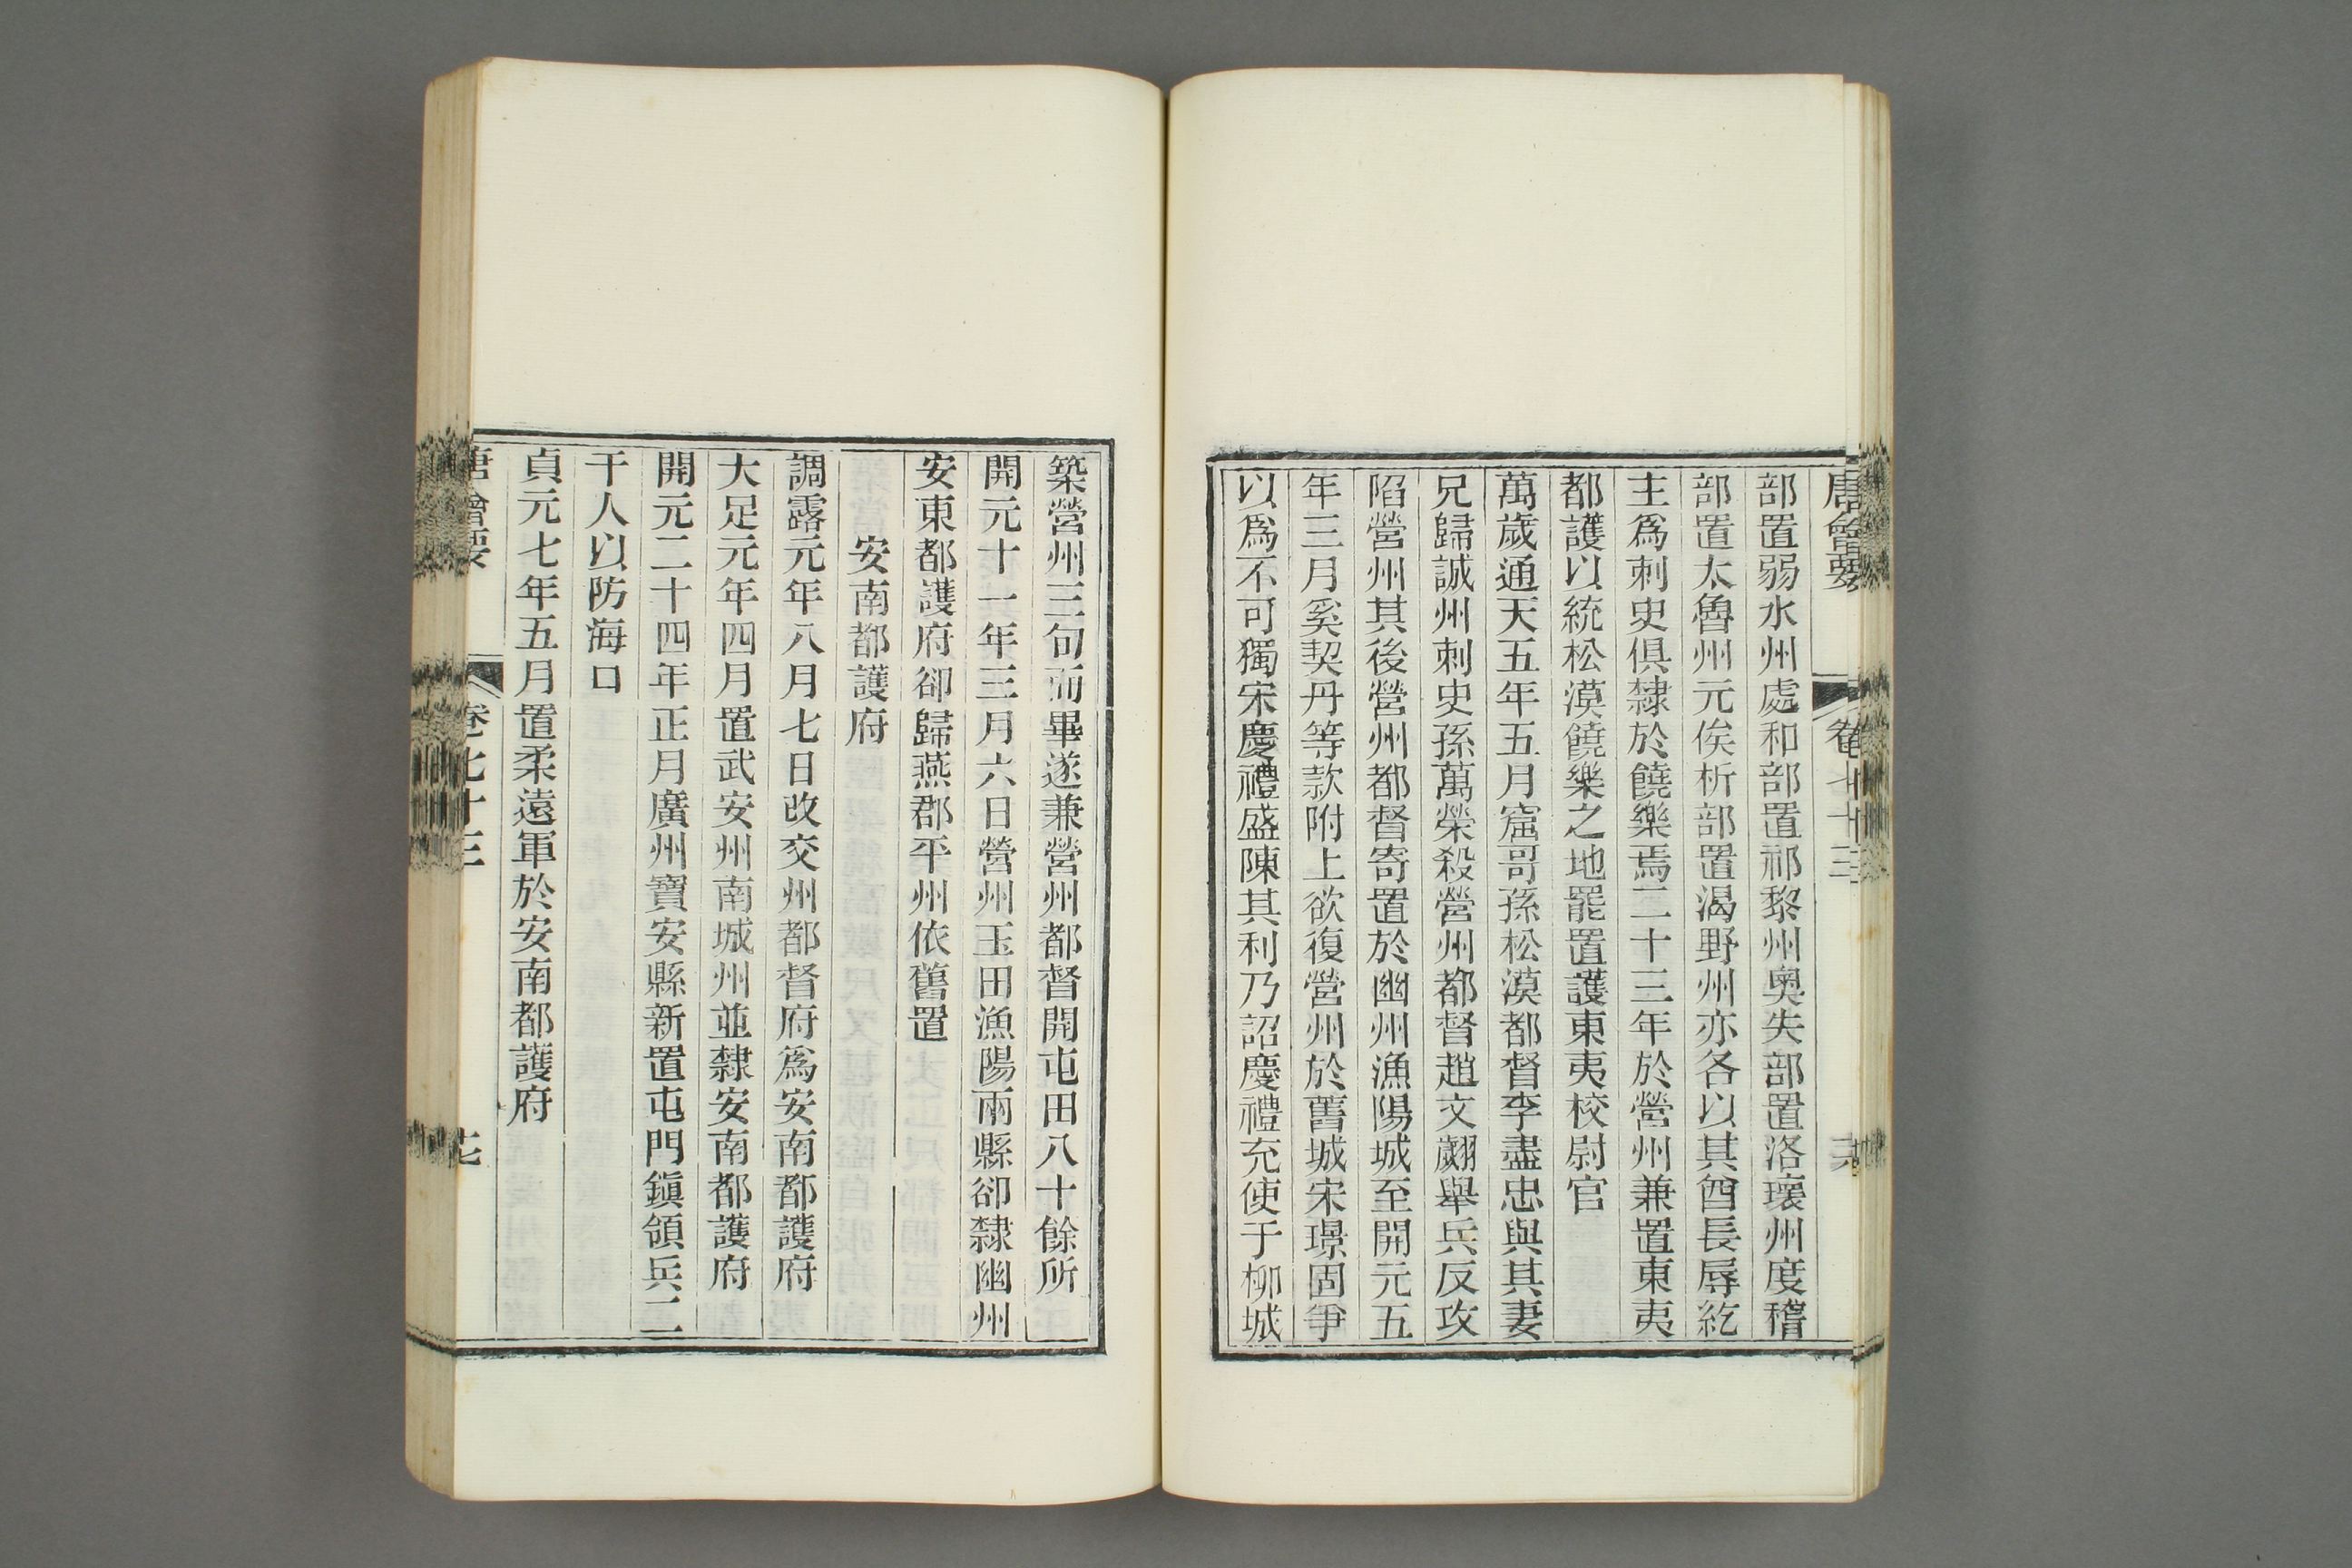 唐會要 卷七十三
部置弱水州處和部置祁黎州奧失部置洛瓌州度稽
部置太魯州元俟析部置渴野州亦各以其酋長辱紇
主爲刺史俱隸於饒樂焉二十三年於營州兼置東夷
都護以統松漠饒樂之地罷置護東夷校尉官
萬歲通天五年五月窟哥孫松漠都督李盡忠與其妻
兄歸誠州刺史孫萬榮殺營州都督趙文翽舉兵反攻
陷營州其後營州都督寄置於幽州漁陽城至開元五
年三月奚契丹等款附上欲復營州於舊城宋璟固爭
以爲不可獨宋慶禮盛陳其利乃詔慶禮充使于柳城
築營州三旬而畢遂兼營州都督開屯田八十餘所
開元十一年三月六日營州玉田漁陽兩縣卻隸幽州
安東都護府卻歸燕郡平州依舊置
安南都護府
調露元年八月七日改交州都督府爲安南都護府
大足元年四月置武安州南城州並隸安南都護府
開元二十四年正月廣州寶安縣新置屯門鎭領兵二
千人以防海口
貞元七年五月置柔遠軍於安南都護府
唐會要 卷七十三 七